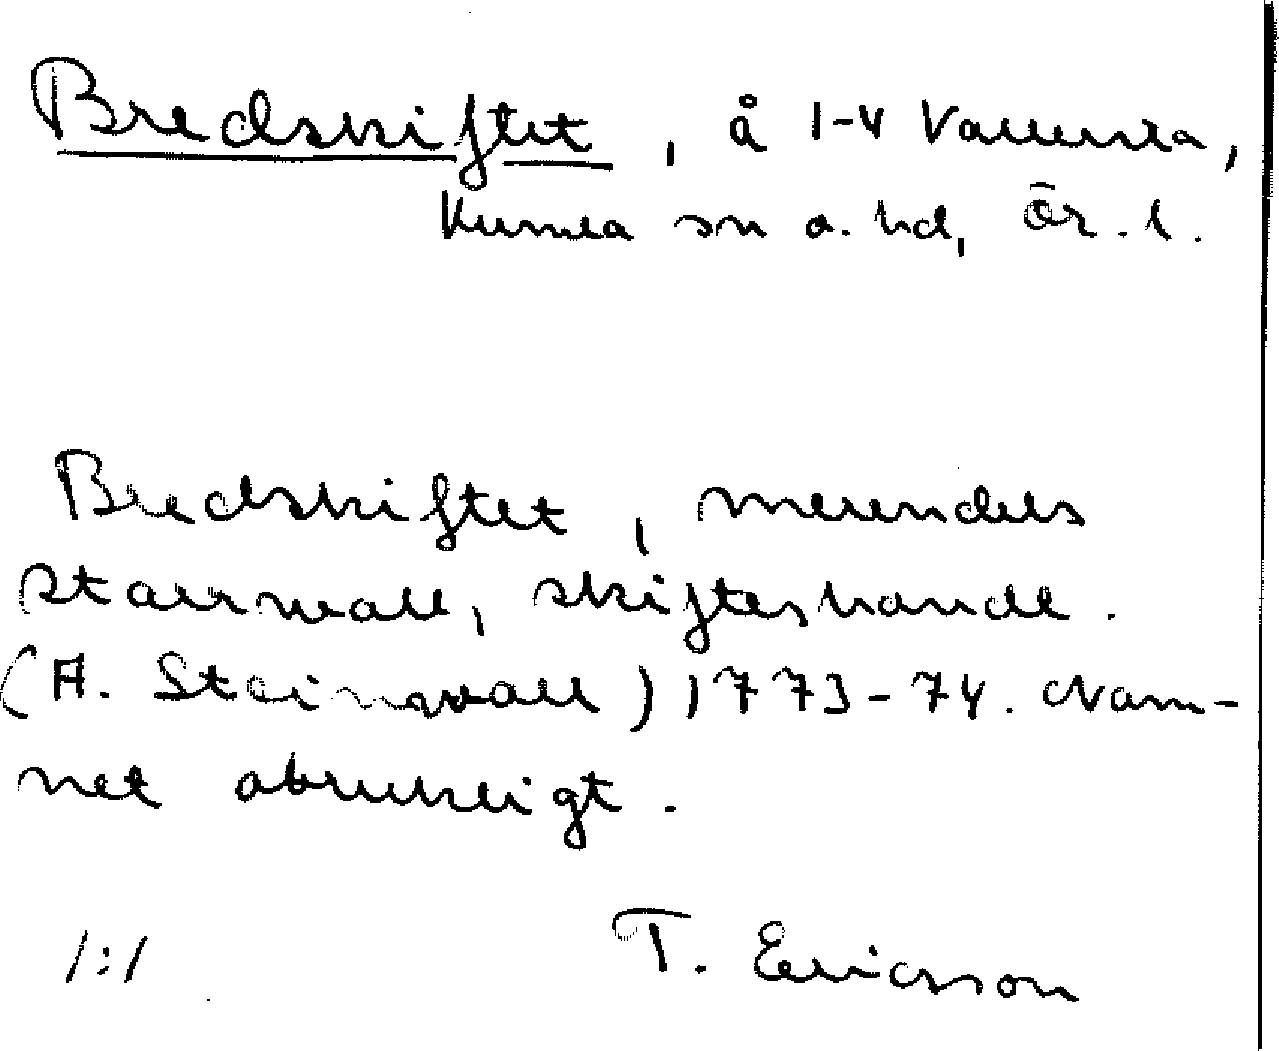 Bredskiftet, å 1-4 Vallersta,
Kumla sn o. hd, Ör. l.
Bredskiftet, merendels
starrwall, skifteshandl.
(A. Steinwall) 1773-74. Nam-
net obrukligt.
1:1 T. Ericson